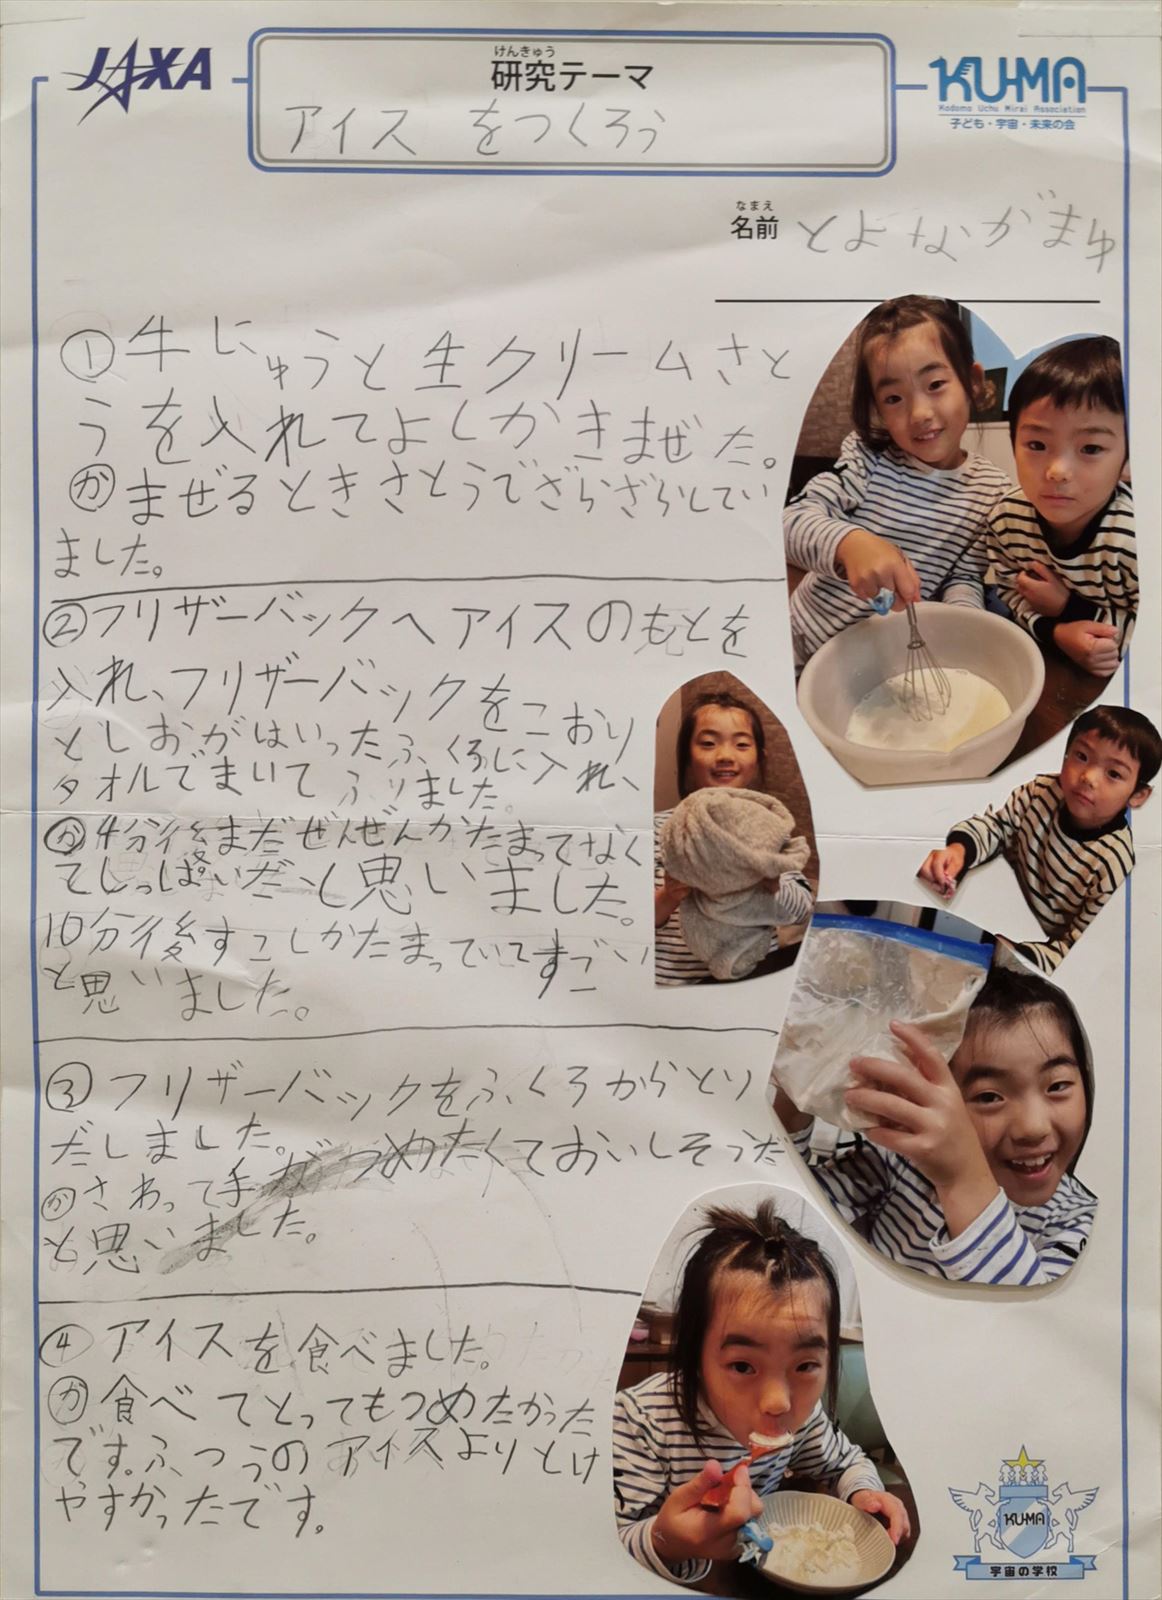 JAXA
けんきゅう
研究テーマ
アイスをつくろう
KU-MA
Kodomo Uchu Mirai Association
子ども・宇宙・未来の会
なまえ
名前 とよながまゆ
①牛にゅうと生クリームさと
うを入れてよしかきまぜた。
かまぜるときさとうでざらざらしてい
ました。
②フリザーバックへアイスのもとを
入れ、フリザーバックをこおり
としおがはいったふくろに入れ、
タオルでまいてふりました。
か4分後まだぜんぜんかたまってなく
てしっぱいだと思いました。
10分後すこしかたまっていてすごい
と思いました。
③フリザーバックをふくろからとり
だしました。
かさわって手がつめたくておいしそうだ
と思いました。
④アイスを食べました。
か食べてとってもつめたかった
です。ふつうのアイスよりとけ
やすかったです。
KU-MA
宇宙の学校